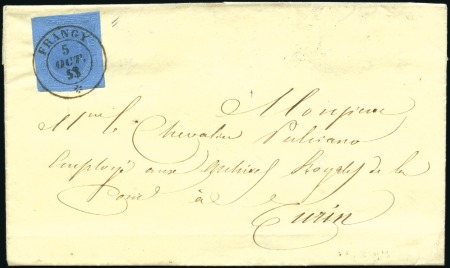 FRANGY
5
OCT.
53
*
Monsieur
Mr le Chevalier Pulciano
Employé aux Archives Royales de la
à
Turin